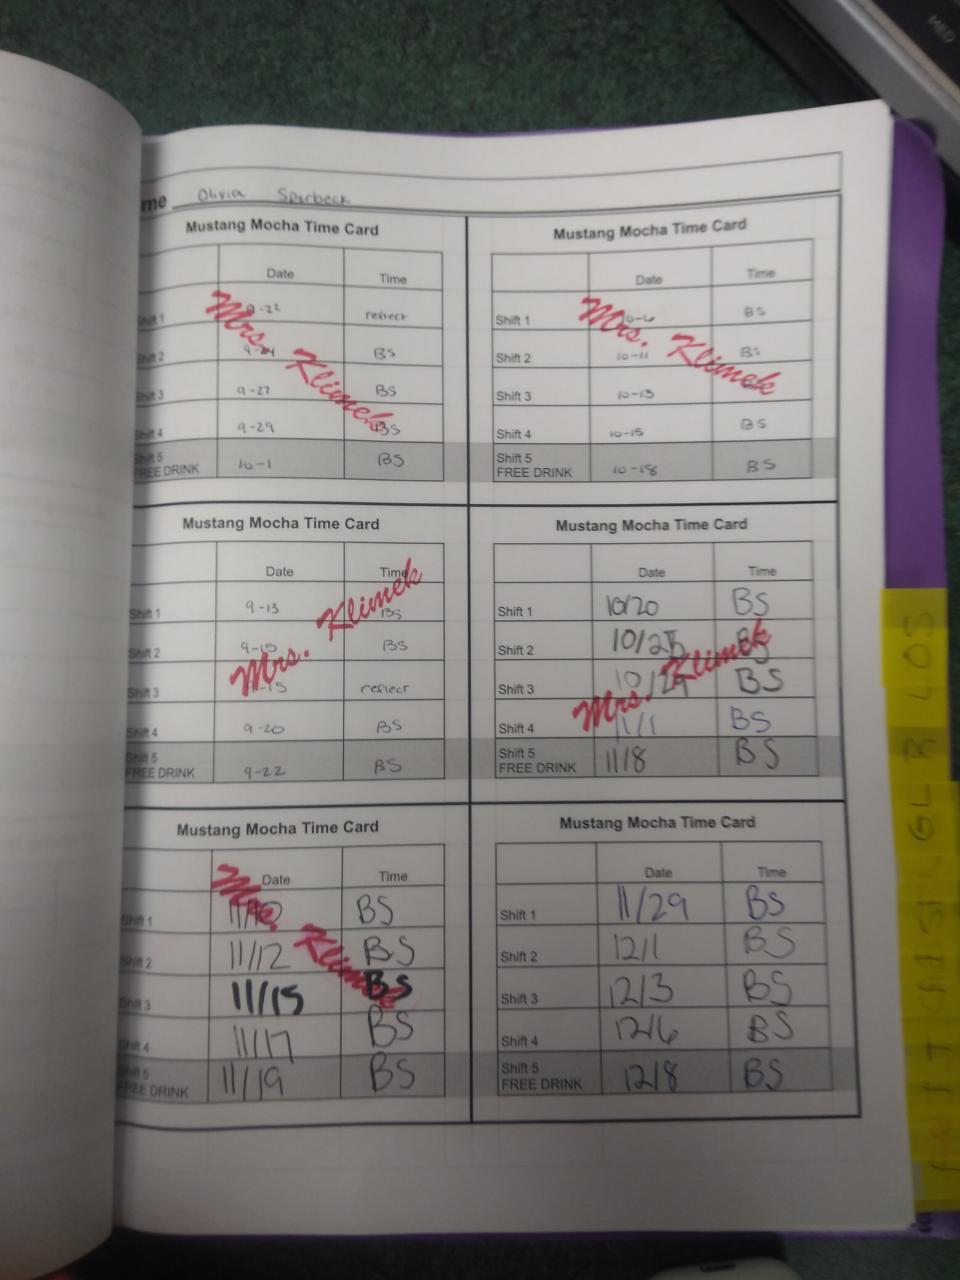 me Olivia Sparbeck
Mustang Mocha Time Card
Date Time
Shift 1 9-22 reflect
Shift 2 BS
Shift 3 9-27 BS
Shift 4 9-29 BS
Shift 5
FREE DRINK 10-1 BS
Mrs. Klimek
Mustang Mocha Time Card
Date Time
Shift 1 10-6 BS
Shift 2 10-11 BS
Shift 3 10-13
Shift 4 10-15 BS
Shift 5
FREE DRINK 10-18 BS
Mrs. Klimek
Mustang Mocha Time Card
Date Time
Shift 1 9-13 BS
Shift 2 9-15 BS
Shift 3 reflect
Shift 4 9-20 BS
Shift 5
FREE DRINK 9-22 BS
Mrs. Klimek
Mustang Mocha Time Card
Date Time
Shift 1 10/20 BS
Shift 2 BS
Shift 3 BS
Shift 4 11/1 BS
Shift 5
FREE DRINK 11/8 BS
Mrs. Klimek
Mustang Mocha Time Card
Date Time
Shift 1 11/10 BS
Shift 2 11/12 BS
Shift 3 11/15 BS
Shift 4 11/17 BS
Shift 5
FREE DRINK 11/19 BS
Mrs. Klimek
Mustang Mocha Time Card
Date Time
Shift 1 11/29 BS
Shift 2 12/1 BS
Shift 3 12/3 BS
Shift 4 12/6 BS
Shift 5
FREE DRINK 12/8 BS
MED